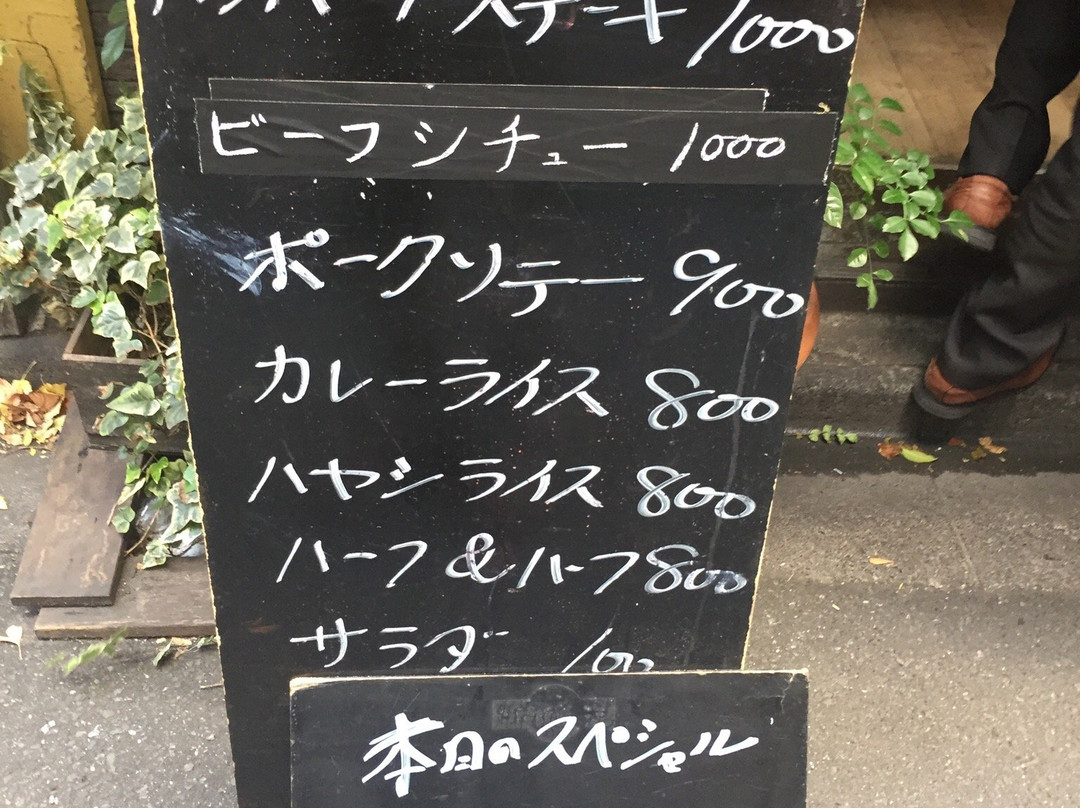 ハンバーグステーキ 1000
ビーフシチュー 1000
ポークソテー 900
カレーライス 800
ハヤシライス 800
ハーフ&ハーフ 800
サラダ 100
本日のスペシャル